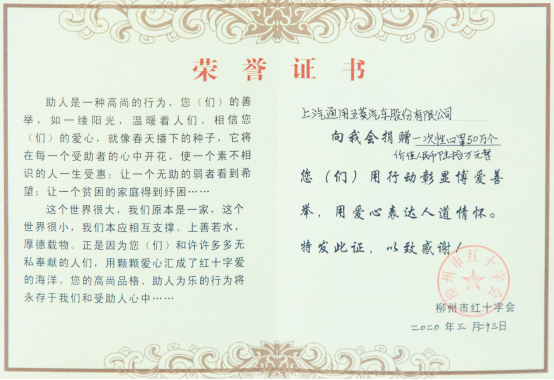 荣誉证书
助人是一种高尚的行为，您（们）的善
举，如一缕阳光，温暖着人们。相信您
（们）的爱心，就像春天播下的种子，它将
在每一个受助者的心中开花，使一个素不相
识的人一生受惠：让一个无助的弱者看到希
望；让一个贫困的家庭得到纾困……
这个世界很大，我们原本是一家，这个
世界很小，我们本应相互支撑。上善若水，
厚德载物。正是因为您（们）和许许多多无
私奉献的人们，用颗颗爱心汇成了红十字爱
的海洋。您的高尚品格、助人为乐的行为将
永存于我们和受助人心中……
上汽通用五菱汽车股份有限公司
向我会捐赠一次性口罩50万个
价值人民币陆拾万元整
您（们）用行动彰显博爱善
举，用爱心表达人道情怀。
特发此证，以致感谢！
柳州市红十字会
柳州市红十字会
2020年三月二十三日